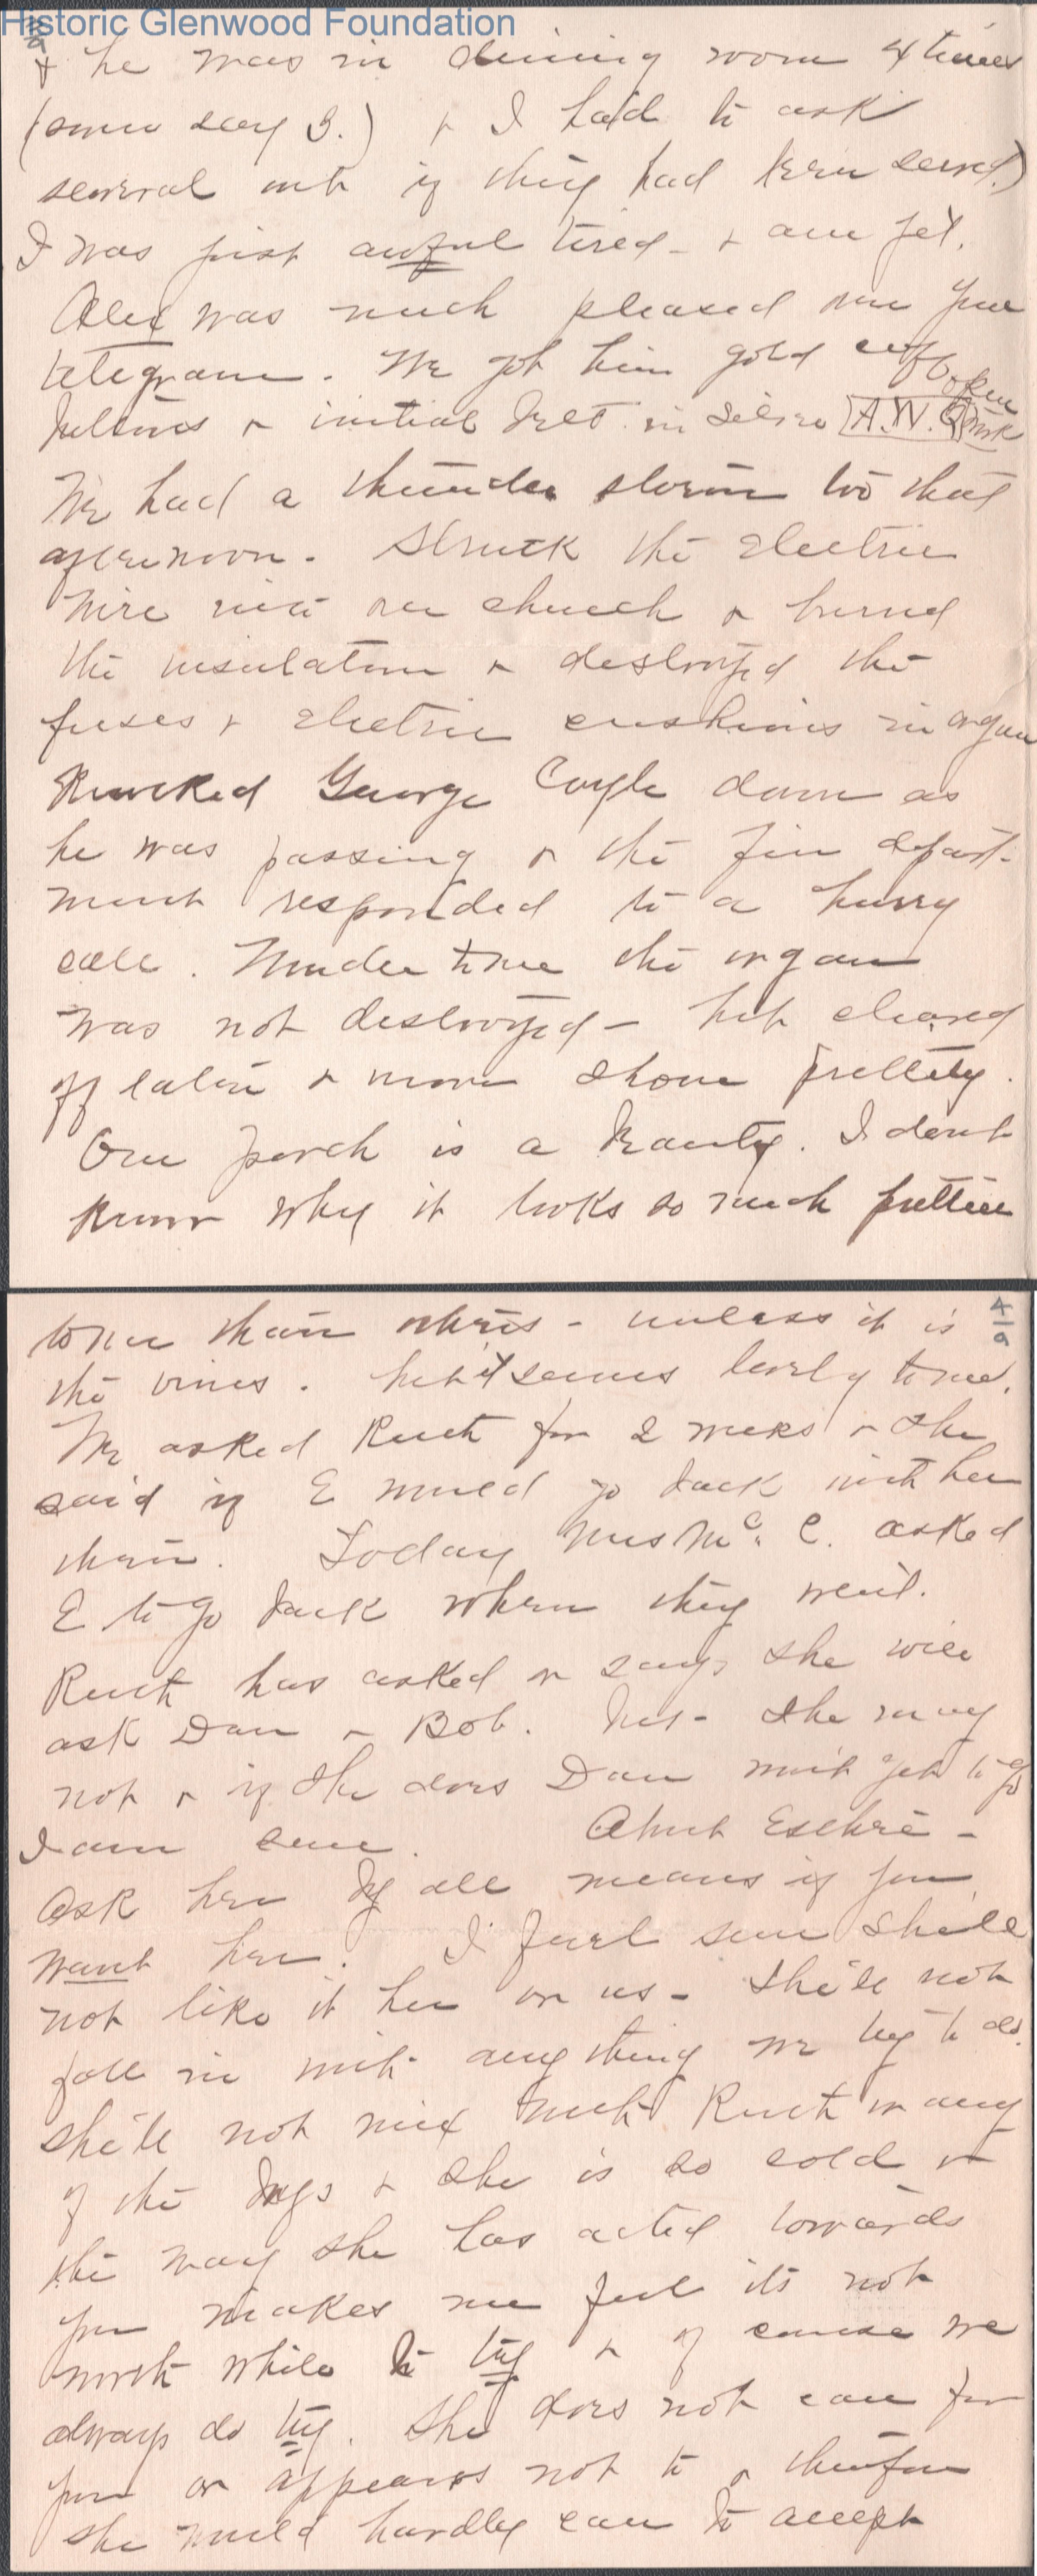 Historic Glenwood Foundation
3/9
& he was in dining room 4 times
(some say 3.) & I had to ask
several out if they had been served.)
I was just awful tired - & am yet.
Alex was much pleased over your
telegram. We got him gold cuff
buttons & initial belt in silver A.W.
We had a thunder storm too that
afternoon. Struck the electric
wire into our church & burned
the insulation & destroyed the
fuses & electric cushions in organ
Knocked George Coyle down as
he was passing & the fire depart-
ment responded to a hurry
call. Wonder to me the organ
was not destroyed - but cleared
off later & moon shone prettily.
Our porch is a beauty. I don't
know why it looks so much prettier
4/9
to me than others - unless it is
the vines. but it seems lovely to me.
We asked Ruth for 2 weeks & she
said if E would go back with her
then. Today Mrs Mc. C. asked
E to go back when they went.
Ruth has asked or says she will
ask Dan & Bob. but - she may
not & if she does Dan wont get to go
I am sure. About Esther -
Ask her by all means if you
want her. I feel sure she'll
not like it here or us - She'll not
fall in with anything we try to do.
she'll not mix with Ruth or any
of the boys & she is so cold &
the way she has acted towards
you makes me feel its not
worth while to try & of course we
always do try. She does not care for
you or appears not to & therefore
she would hardly care to accept